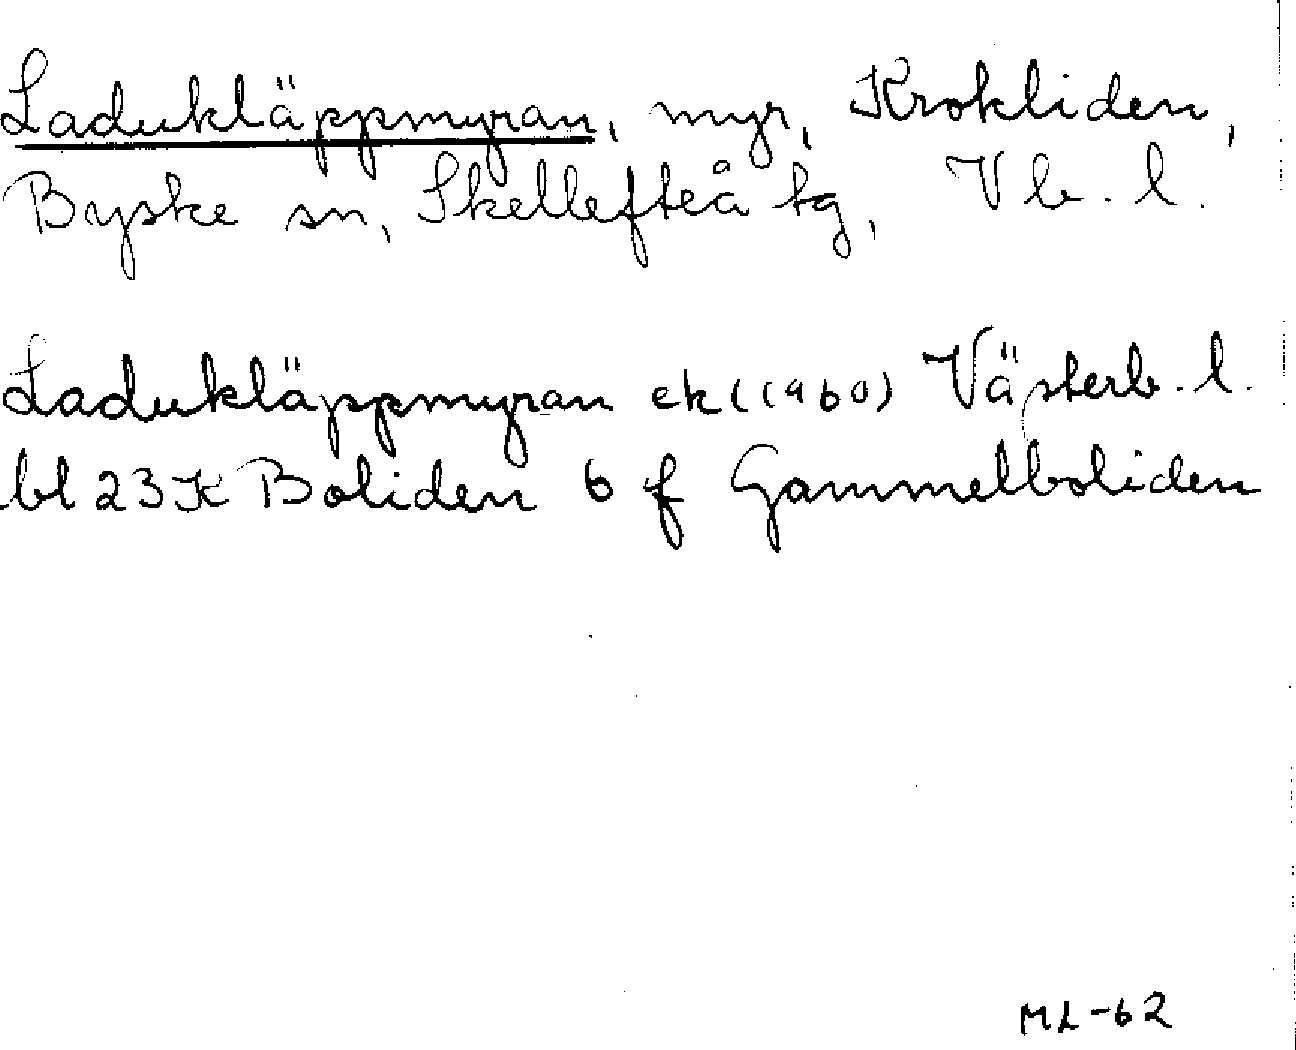 Ladukläppmyran, myr, Krokliden,
Byske sn, Skellefteå tg, Vb. l.
Ladukläppmyran ek (1960) Västerb. l.
bl 23 K Boliden 6 f Gammelboliden
ML-62